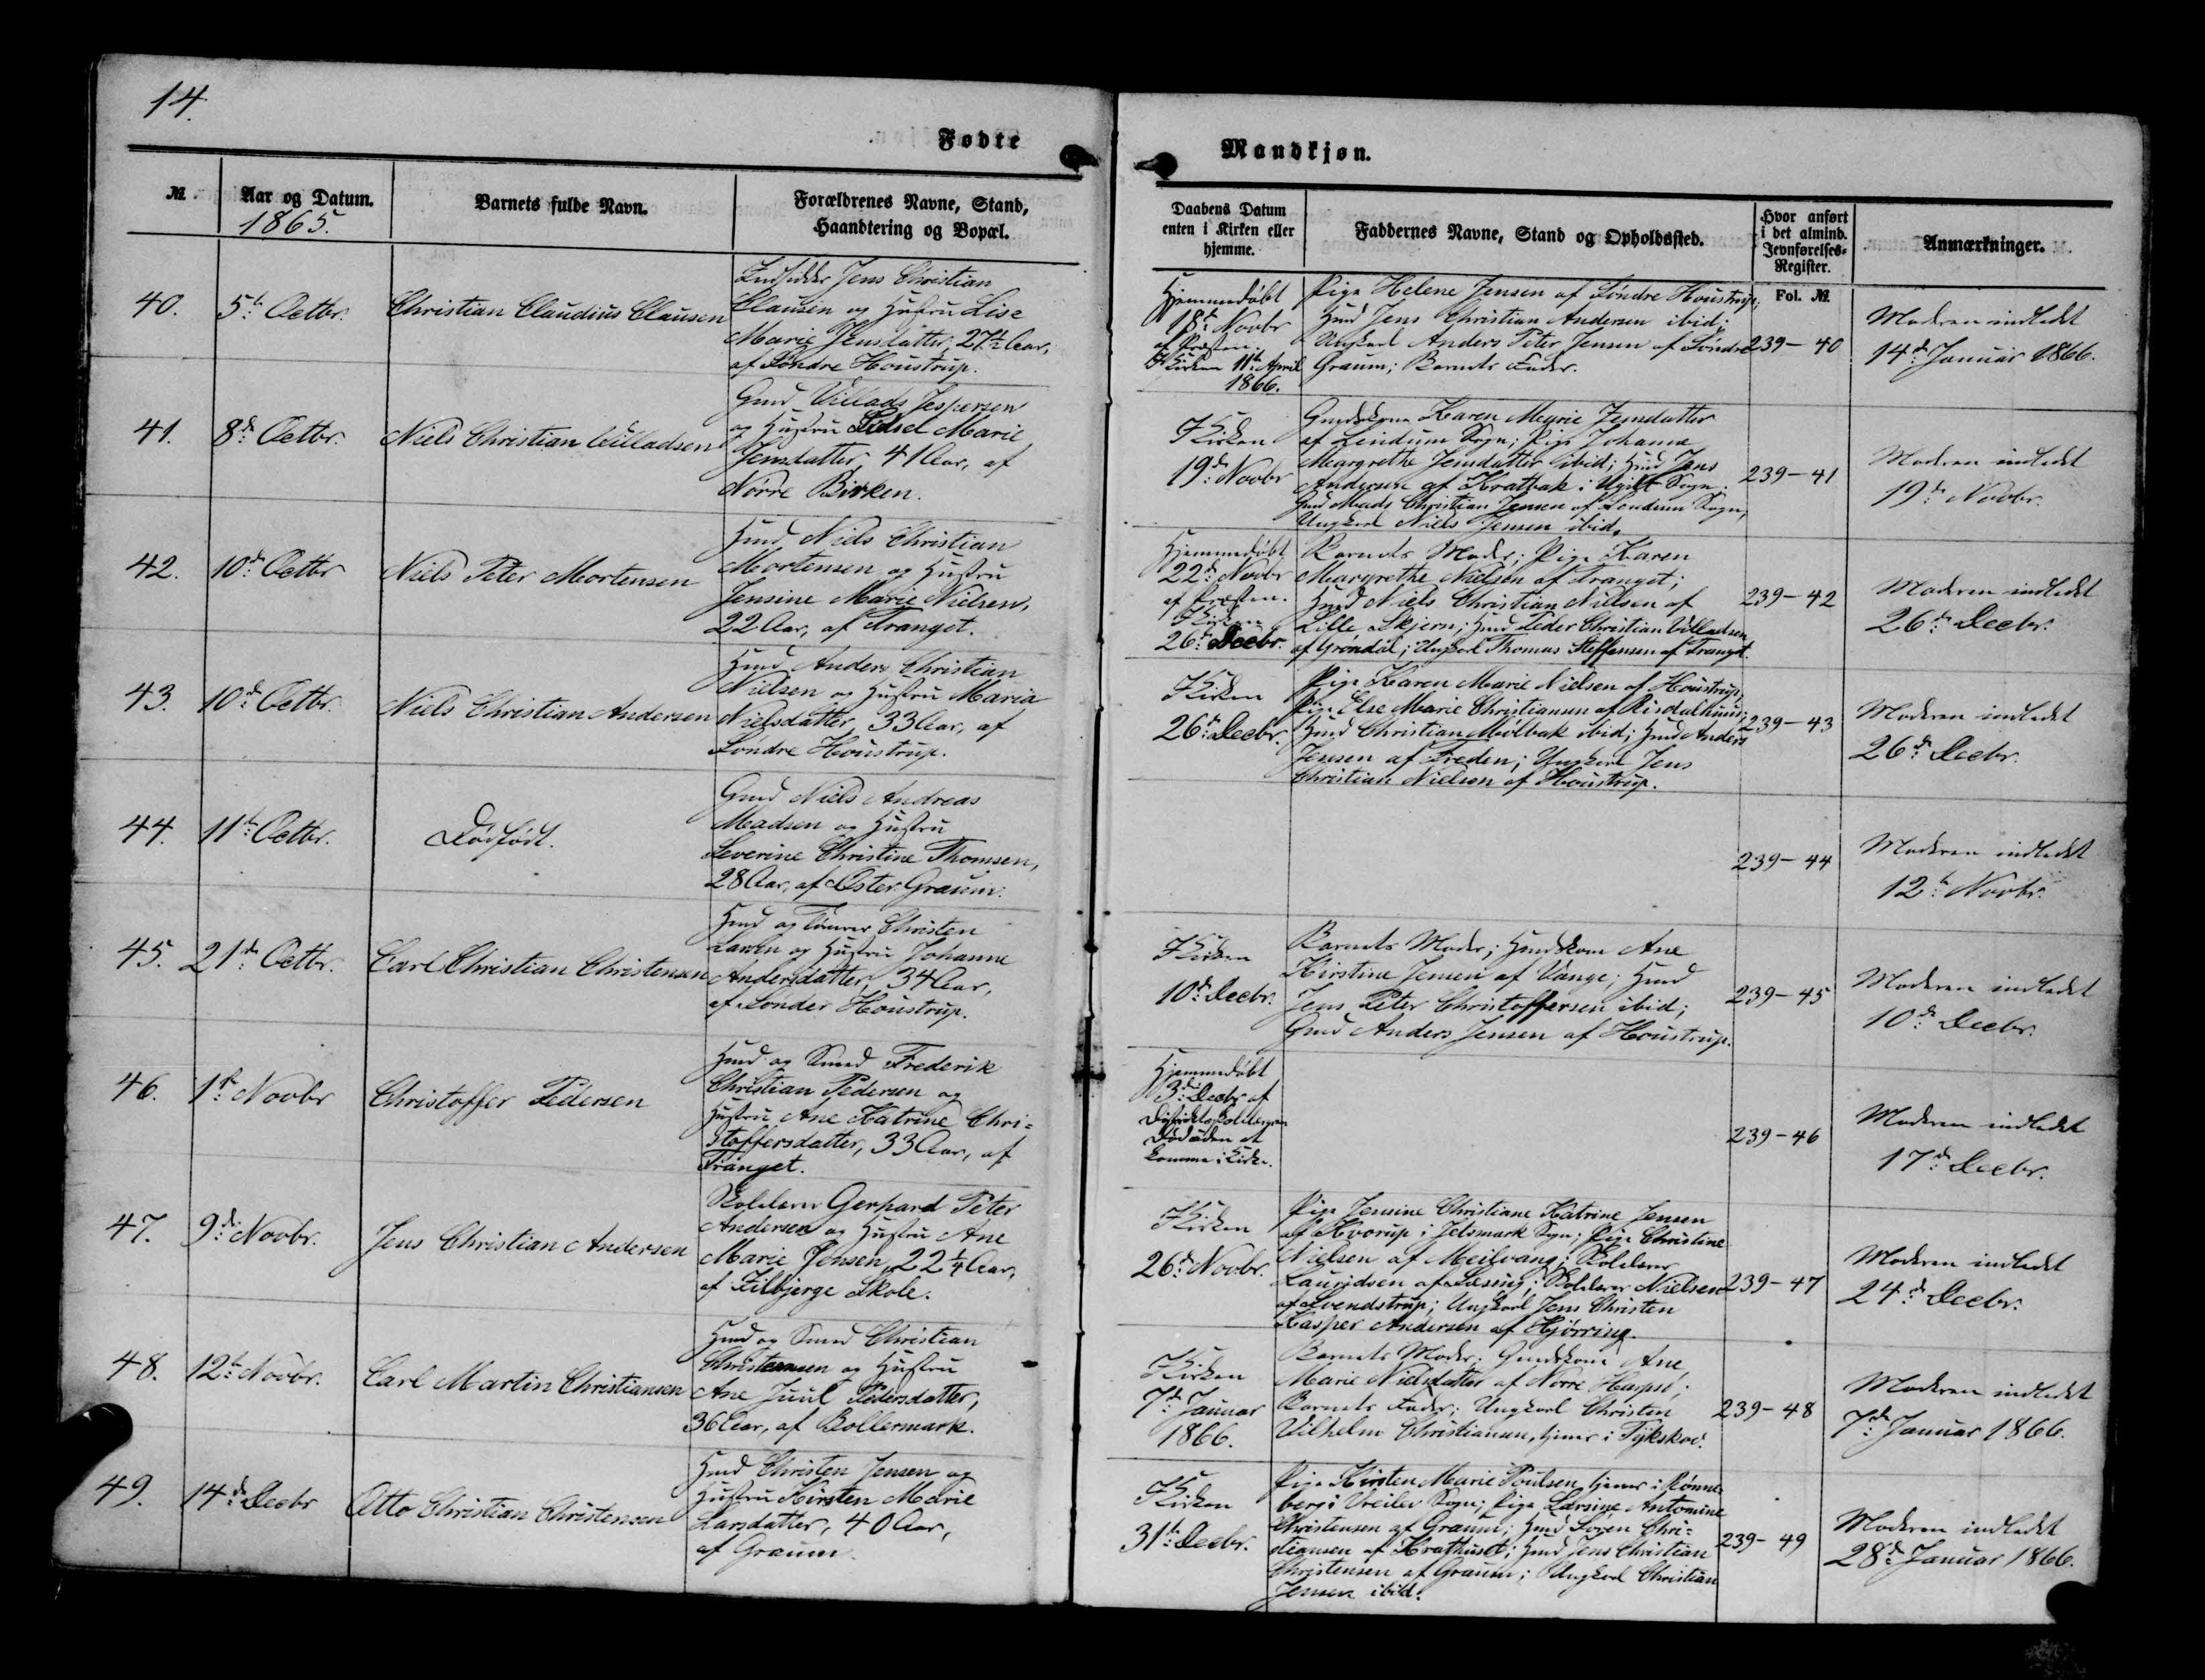 14.
Fødte
Mandkjøn.
№
Aar og Datum.
1865.
Barnets fulde Navn.
Forældrenes Navne, Stand,
Haandtering og Bopæl.
Daabens Datum
enten i Kirken eller
hjemme.
Faddernes Navne, Stand og Opholdssted.
Hvor anført
i det almind.
Jevnførelses-
Register.
Fol. №
Anmærkninger.
40.
5te Octbr.
Christian Claudius Clausen
Indsidder Jens Christian
Clausen og Hustru Lise
Marie Jensdatter, 27½ Aar,
af Søndre Houstrup.
Hjemmedøbt
18de Novbr
af Præsten.
I Kirken 11te April
1866.
Pige Helene Jensen af Søndre Houstrup;
Hmd Jens Christian Andersen ibid;
Ungkarl Anders Peter Jensen af Søndre
Graum; Barnets Fader.
239-40
Moderen indledet
14de Januar 1866.
41.
8de Octbr.
Niels Christian Villadsen
Gmd Villads Jespersen
og Hustru Sidsel Marie
Jensdatter, 41 Aar, af
Nørre Birken.
I Kirken
19de Novbr
Gmdskone Karen Marie Jensdatter
af Lendum Sogn; Pige Johanne
Margrethe Jensdatter ibid; Hmd Jens
Andersen af Kratbak i Ugilt Sogn.
Gmd Mads Christian Jensen af Lendum Sogn,
Ungkarl Niels Jensen ibid.
239-41
Moderen indledet
19de Novbr.
42.
10de Octbr
Niels Peter Mortensen
Hmd Niels Christian
Mortensen og Hustru
Jensine Marie Nielsen,
22 Aar, af Tranget.
Hjemmedøbt
22de Novbr
af Præsten.
I Kirken
26de Decbr.
Barnets Moder; Pige Karen
Margrethe Nielsen af Tranget;
Hmd Niels Christian Nielsen af
Lille Skjern; Hmd Peder Christian Villadsen
af Grøndal; Ungkarl Thomas Steffensen af Tranget.
239-42
Moderen indledet
26de Decbr.
43.
10de Octbr.
Niels Christian Andersen
Hmd Anders Christian
Nielsen og Hustru Maria
Nielsdatter, 33 Aar, af
Søndre Houstrup.
I Kirken
26de Decbr.
Pige Karen Marie Nielsen af Houstrup;
Pige Else Marie Christiansen af Risdalhuus;
Hmd Christian Mølbak ibid; Hmd Anders
Jensen af Freden; Ungkarl Jens
Christian Nielsen af Houstrup.
239-43
Moderen indledet
26de Decbr.
44.
11te Octbr.
Dødfødt.
Gmd Niels Andreas
Madsen og Hustru
Severine Christine Thomsen,
28 Aar, af Øster Graum.
239-44
Moderen indledet
12te Novbr.
45.
21de Octbr.
Carl Christian Christensen
Hmd og Tømrer Christen
Larsen og Hustru Johanne
Andersdatter, 34 Aar,
af Sønder Houstrup.
I Kirken
10de Decbr.
Barnets Moder; Hmdskone Ane
Kirstine Jensen af Vange; Hmd
Jens Peter Christoffersen ibid;
Gmd Anders Jensen af Houstrup.
239-45
Moderen indledet
10de Decbr.
46.
1ste Novbr
Christoffer Pedersen
Hmd og Smed Frederik
Christian Pedersen og
Hustru Ane Katrine Chri-
stoffersdatter, 33 Aar, af
Tranget.
Hjemmedøbt
3de Decbr af
Død uden at
komme i Kirke.
239-46
Moderen indledet
17de Decbr.
47.
9de Novbr.
Jens Christian Andersen
Skolelærer Gerhard Peter
Andersen og Hustru Ane
Marie Jensen, 22¼ Aar,
af Filbjerge Skole.
I Kirken
26de Novbr.
Pige Jensine Christiane Katrine Jensen
af Kvorup i Jetsmark Sogn; Pige Christine
Nielsen af Meilvang; Skolelærer
Lauridsen af Sæsing; Skolelærer Nielsen
af Svendstrup; Ungkarl Jens Christen
Kasper Andersen af Hjørring.
239-47
Moderen indledet
24de Decbr.
48.
12te Novbr.
Carl Martin Christiansen
Hmd og Smed Christian
Christensen og Hustru
Ane Juul Pedersdatter,
36 Aar, af Bollermark.
I Kirken
7de Januar
1866.
Barnets Moder; Gmdskone Ane
Marie Nielsdatter af Nørre Harpsø;
Barnets Fader; Ungkarl Christen
Vilhelm Christiansen, tjener i Tykskov.
239-48
Moderen indledet
7de Januar 1866.
49.
14de Decbr
Otto Christian Christensen
Hmd Christen Jensen og
Hustru Kirsten Marie
Larsdatter, 40 Aar,
af Graum.
I Kirken
31te Decbr.
Pige Kirsten Marie Poulsen, tjener i Rønne-
berg i Vreilev Sogn; Pige Larsine Antomine
Christensen af Graum; Hmd Søren Chri-
stiansen af Krathuset; Hmd Jens Christian
Christensen af Graum; Ungkarl Christian
Jensen ibid.
239-49
Moderen indledet
28de Januar 1866.